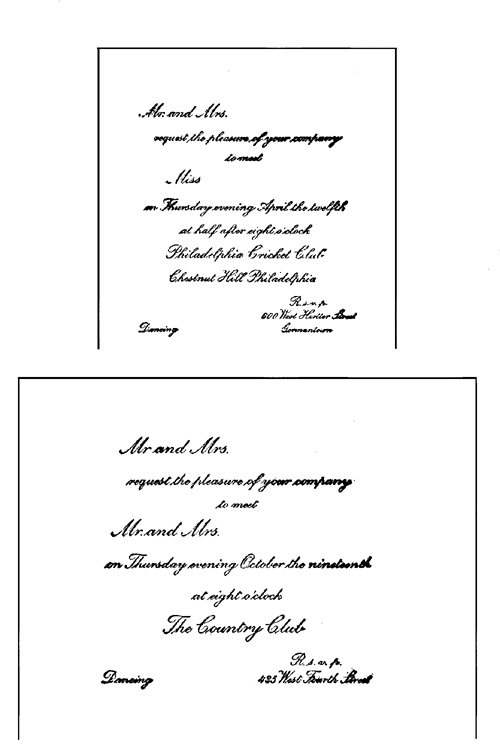 Mr. and Mrs.
request the pleasure of your company
to meet
Miss
on Thursday evening April the twelfth
at half after eight o'clock
Philadelphia Cricket Club
Chestnut Hill Philadelphia
R.s.v.p.
600 West Street
Dancing Germantown
Mr. and Mrs.
request the pleasure of your company
to meet
Mr. and Mrs.
on Thursday evening October the nineteenth
at eight o'clock
The Country Club
R.s.v.p.
Dancing 435 West Fourth Street